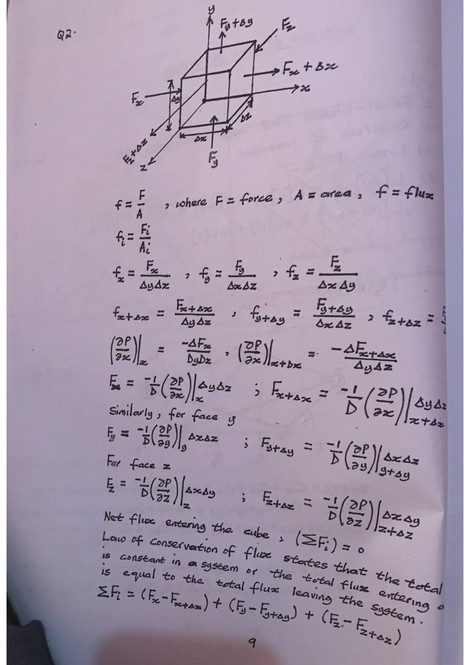 Q2.
y
F_y+Δy
F_z
F_x+Δx
F_x
Δy
x
Δz
F_z+Δz
Δx
z
F_y
f = F/A , where F = force, A = area, f = flux
f_i = F_i/A_i
f_x = F_x/ΔyΔx , f_y = F_y/ΔxΔz , f_z = F_z/ΔxΔy
f_x+Δx = F_x+Δx/ΔyΔz , f_y+Δy = F_y+Δy/ΔxΔz , f_z+Δz =
(∂P/∂x)|_x = -ΔF_x/DyDz , (∂P/∂x)|_x+Dx = -ΔF_x+Δx/ΔyΔz
F_x = -1/D (∂P/∂x)|_x ΔyΔz ; F_x+Δx = -1/D (∂P/∂x)|_x+Δx ΔyΔz
Similarly, for face y
F_y = -1/D (∂P/∂y)|_y ΔxΔz ; F_y+Δy = -1/D (∂P/∂y)|_y+Δy ΔxΔz
For face z
F_z = -1/D (∂P/∂z)|_z ΔxΔy ; F_z+Δz = -1/D (∂P/∂z)|_z+Δz ΔxΔy
Net flux entering the cube, (ΣF_i) = 0
Law of conservation of flux states that the total
is constant in a system or the total flux entering
is equal to the total flux leaving the system.
ΣF_i = (F_x - F_x+Δx) + (F_y - F_y+Δy) + (F_z - F_z+Δz)
9